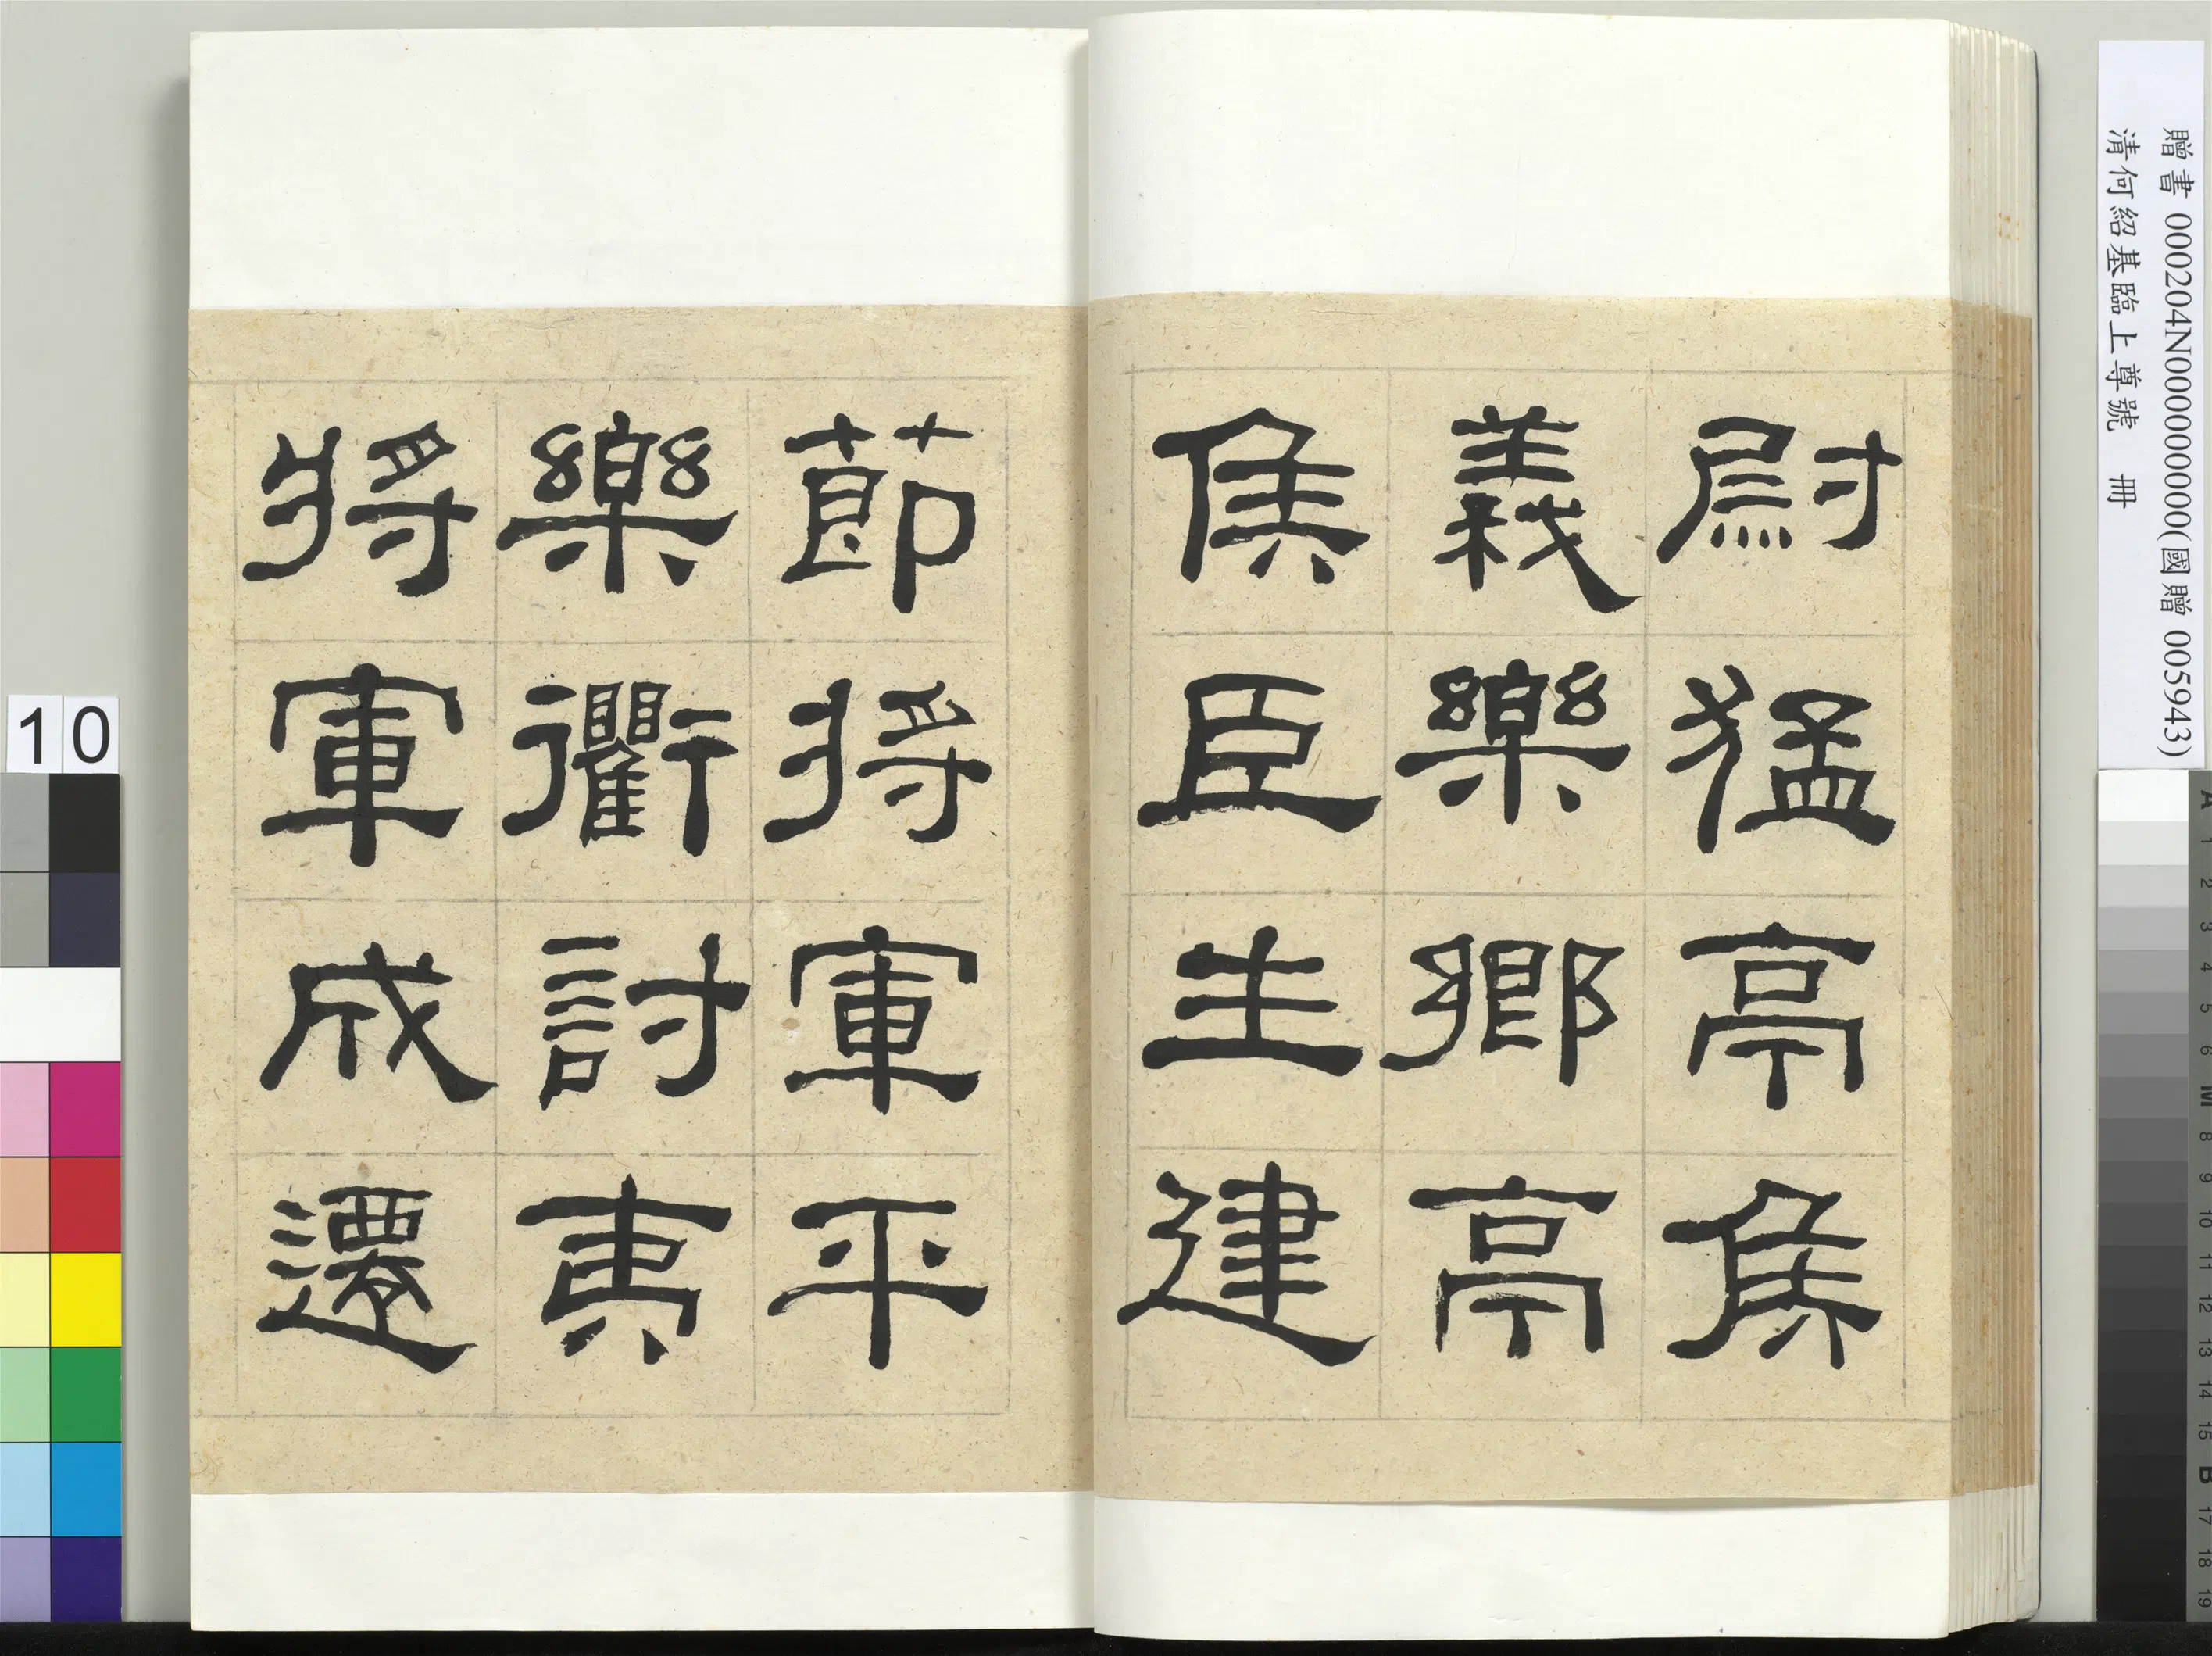 贈書 000204N000000000(國贈 005943)
清何紹基臨上尊號 冊
尉猛亭侯
義樂鄉亭
侯臣生建
節將軍平
樂衢討夷
將軍成遷
10
A 1 2 3 4 5 6 M 8 9 10 11 12 13 14 15 B 17 18 19